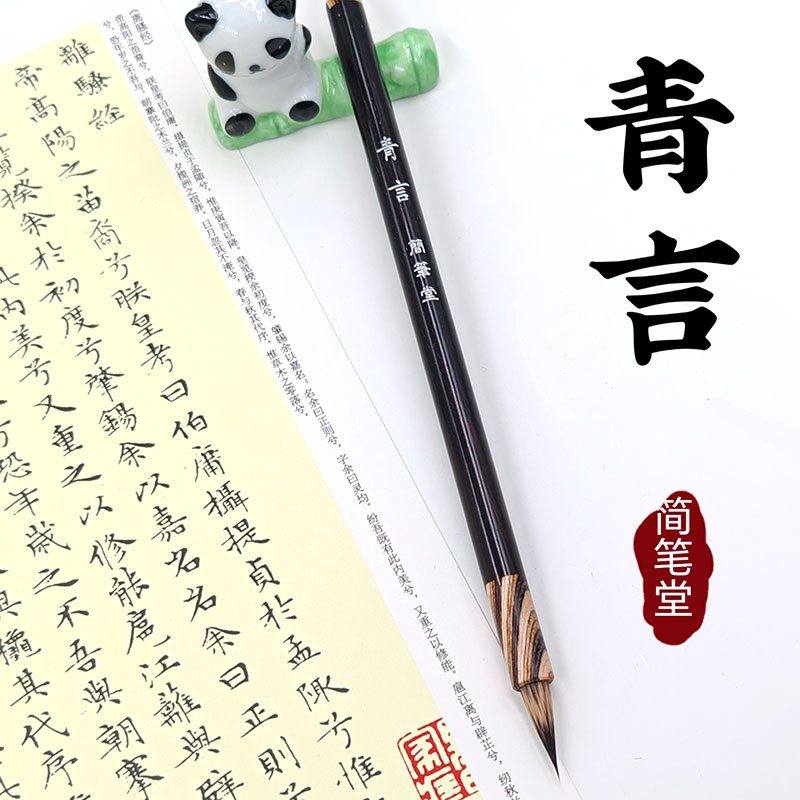 青言
简笔堂
青言 簡筆堂
《离骚经》
帝高阳之苗裔兮，朕皇考曰伯庸。摄提贞于孟陬兮，惟庚寅吾以降。皇览揆余初度兮，肇锡余以嘉名：名余曰正则兮，字余曰灵均。纷吾既有此内美兮，又重之以修能。扈江离与辟芷兮，纫秋
兮，恐年岁之不吾与。朝搴阰之木兰兮，夕揽洲之宿莽。日月忽其不淹兮，春与秋其代序。惟草木之零落兮，
離騷經
帝高陽之苗裔兮朕皇考曰伯庸攝提貞於孟陬兮惟
揆余於初度兮肇錫余以嘉名名余曰正則
此內美兮又重之以修能扈江離與辟
兮恐年歲之不吾與朝搴
其代序